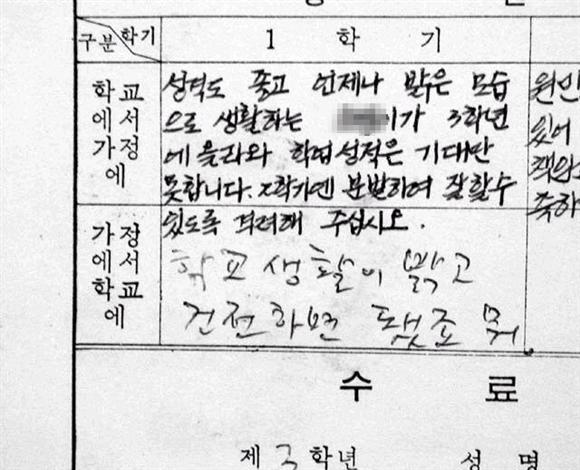 구분 학기
1 학 기
학교
에서
가정
에
성격도 좋고 언제나 밝은 모습
으로 생활하는 이가 3학년
에 올라와 학업성적은 기대만
못합니다. 2학기엔 분발하여 잘할 수
있도록 격려해 주십시오.
원인
있어
책임
축하
가정
에서
학교
에
학교 생활이 밝고
건전하면 됐죠 뭐
수 료
제 3 학년 성 명